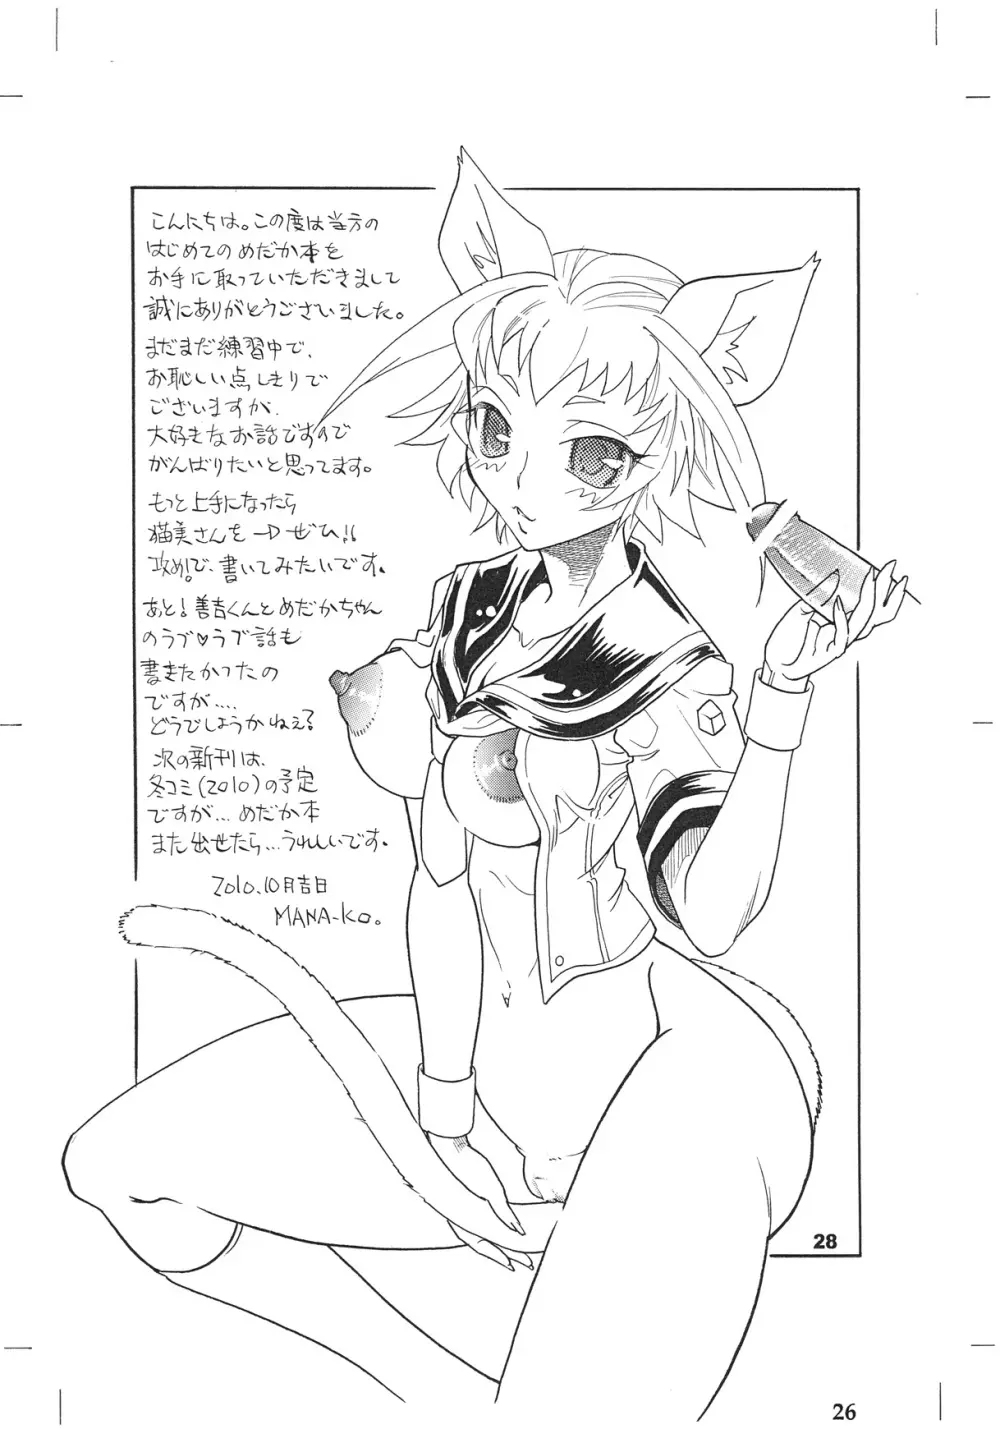 こんにちは。この度は当方の
はじめてのめだか本を
お手に取っていただきまして
誠にありがとうございました。
まだまだ練習中で、
お恥しい点しきりで
ございますが、
大好きなお話ですので
がんばりたいと思ってます。
もっと上手になったら
猫美さんを→ぜひ!!
攻め!で、書いてみたいです。
あと!善吉くんとめだかちゃん
のラブ♡ラブ話も
書きたかったの
ですが....
どうでしょうかねぇ?
次の新刊は、
冬コミ(2010)の予定
ですが...めだか本
また出せたら...うれしいです。
2010.10月吉日
MANA-KO.
28
26